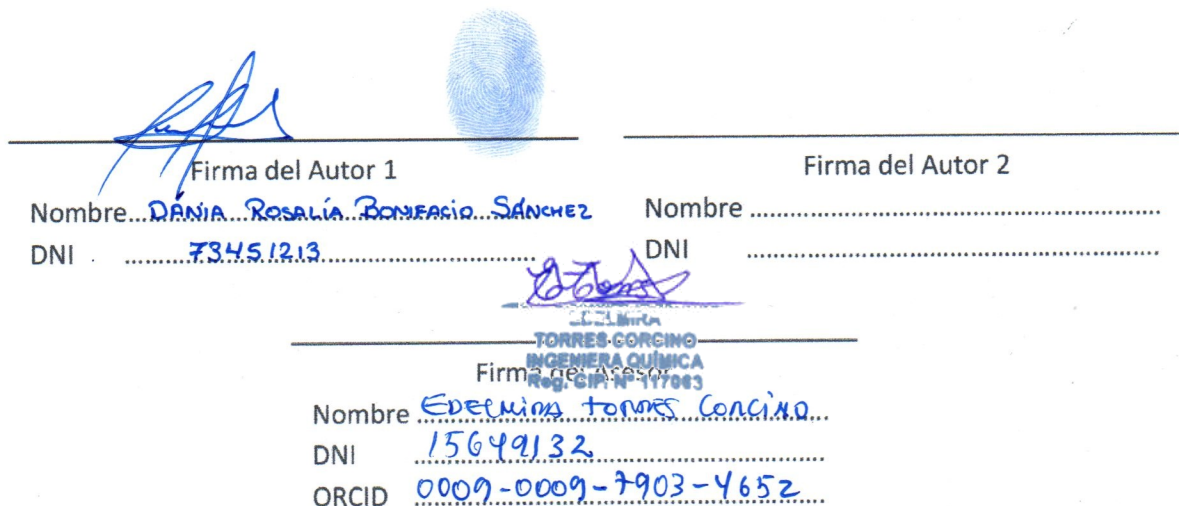 Firma del Autor 1
Nombre DÁNIA ROSALÍA BONIFACIO SÁNCHEZ
DNI 73451213
Firma del Autor 2
Nombre
DNI
EDELMIRA
TORRES CORCINO
INGENIERA QUÍMICA
Reg. CIP. N° 117063
Firma del Asesor
Nombre EDELMIRA TORRES CORCINO
DNI 15649132
ORCID 0009-0009-7903-4652